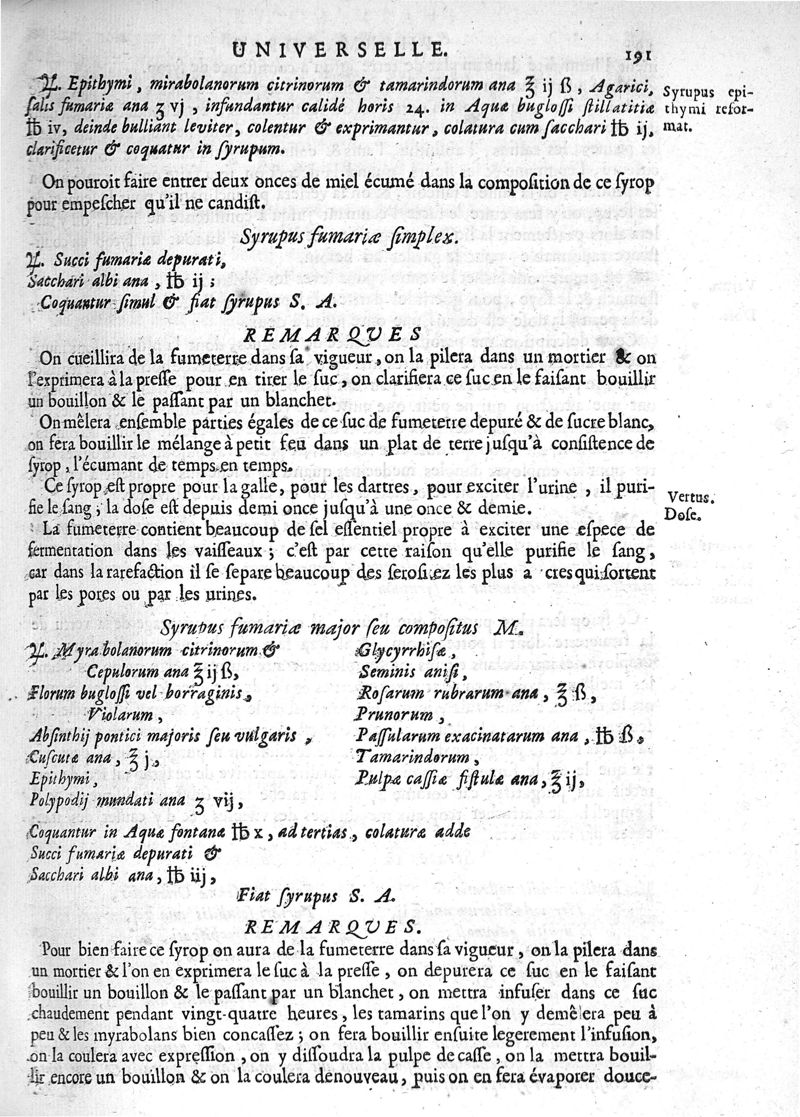 UNIVERSELLE. 191
℞. Epithymi, mirabolanorum citrinorum & tamarindorum ana ℥ ij ß, Agarici,
salis fumariæ ana ʒ vj, infundantur calidé horis 24. in Aquæ buglossi stillatitiæ
℔ iv, deinde bulliant leviter, colentur & exprimantur, colatura cum sacchari ℔ ij,
clarificetur & coquatur in syrupum.
Syrupus epi-
thymi refor-
mat.
On pouroit faire entrer deux onces de miel écumé dans la composition de ce syrop
pour empescher qu'il ne candist.
Syrupus fumariæ simplex.
℞. Succi fumariæ depurati,
Sacchari albi ana, ℔ ij;
Coquantur simul & fiat syrupus S. A.
REMARQUES
On cueillira de la fumeterre dans sa vigueur, on la pilera dans un mortier & on
l'exprimera à la presse pour en tirer le suc, on clarifiera ce suc en le faisant bouillir
un bouillon & le passant par un blanchet.
On mêlera ensemble parties égales de ce suc de fumeterre depuré & de sucre blanc,
on fera bouillir le mélange à petit feu dans un plat de terre jusqu'à consistence de
syrop, l'écumant de temps en temps.
Ce syrop est propre pour la galle, pour les dartres, pour exciter l'urine, il puri-
fie le sang; la dose est depuis demi once jusqu'à une once & demie.
Vertus.
Dose.
La fumeterre contient beaucoup de sel essentiel propre à exciter une espece de
fermentation dans les vaisseaux; c'est par cette raison qu'elle purifie le sang,
car dans la rarefaction il se separe beaucoup des serositez les plus a cres qui sortent
par les pores ou par les urines.
Syrupus fumariæ major seu compositus M.
℞. Myrabolanorum citrinorum &
Cepulorum ana ℥ ij ß,
Florum buglossi vel borraginis,
Violarum,
Absinthij pontici majoris seu vulgaris,
Cuscutæ ana, ℥ j,
Epithymi,
Polypodij mundati ana ʒ vij,
Glycyrrhisæ,
Seminis anisi,
Rosarum rubrarum ana, ℥ ß,
Prunorum,
Passularum exacinatarum ana, ℔ ß,
Tamarindorum,
Pulpæ cassiæ fistulæ ana, ℥ ij,
Coquantur in Aquæ fontanæ ℔ x, ad tertias, colaturæ adde
Succi fumariæ depurati &
Sacchari albi ana, ℔ iij,
Fiat syrupus S. A.
REMARQUES.
Pour bien faire ce syrop on aura de la fumeterre dans sa vigueur, on la pilera dans
un mortier & l'on en exprimera le suc à la presse, on depurera ce suc en le faisant
bouillir un bouillon & le passant par un blanchet, on mettra infuser dans ce suc
chaudement pendant vingt-quatre heures, les tamarins que l'on y demêlera peu à
peu & les myrabolans bien concassez; on fera bouillir ensuite legerement l'infusion,
on la coulera avec expression, on y dissoudra la pulpe de casse, on la mettra bouil-
lir encore un bouillon & on la coulera denouveau, puis on en fera évaporer douce-